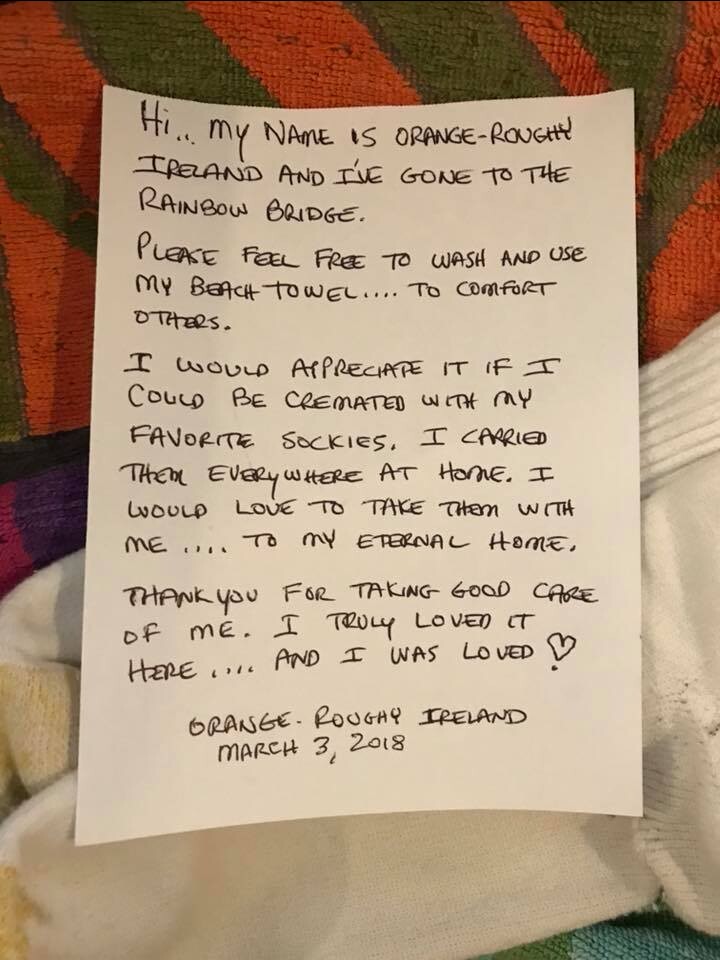 Hi.. my NAME IS ORANGE-ROUGHY
IRELAND AND I'VE GONE TO THE
RAINBOW BRIDGE.
PLEASE FEEL FREE TO WASH AND USE
MY BEACH TOWEL.... TO COMFORT
OTHERS.
I WOULD APPRECIATE IT IF I
COULD BE CREMATED WITH MY
FAVORITE SOCKIES. I CARRIED
THEM EVERYWHERE AT HOME. I
WOULD LOVE TO TAKE THEM WITH
ME .... TO MY ETERNAL HOME.
THANK YOU FOR TAKING GOOD CARE
OF ME. I TRULY LOVED IT
HERE .... AND I WAS LOVED ♡
ORANGE-ROUGHY IRELAND
MARCH 3, 2018